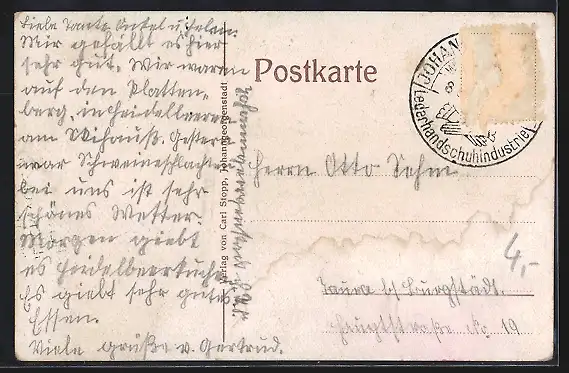 Liebe Tante, Onkel u.
Mir gefällt es hier
sehr gut. Wir waren
auf den Platten-
berg, in Heidelbeeren
am Gestern
war Schweineschlachten
bei uns ist sehr
schönes Wetter.
Morgen giebt
es Heidelbeerkuchen
Es giebt sehr gutes
Essen.
Viele Grüße v. Gertrud.
Johanngeorgenstadt
Verlag von Carl Stopp, Johanngeorgenstadt
Postkarte
JOHANN
Lederhandschuhindustrie
Herrn Otto Sehm
4,-
Taura b/ Burgstädt.
Hauptstraße No. 19